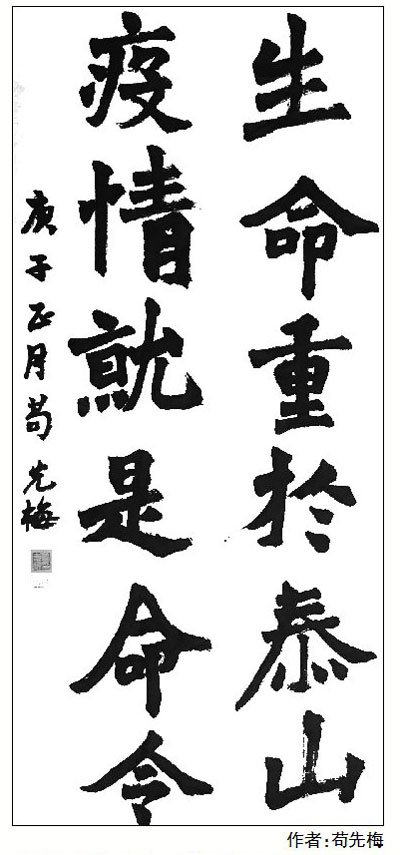 生命重於泰山
疫情就是命令
庚子正月苟先梅
作者:苟先梅